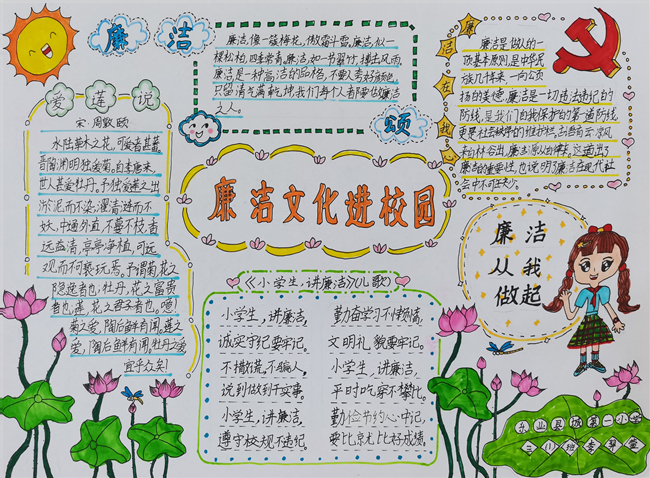 廉洁
颂
廉洁，像一簇梅花，傲霜斗雪。廉洁，似一
棵松柏，四季常青。廉洁，如一节翠竹，搏击风雨。
廉洁是一种高洁的品格，不要人夸好颜色，
只留清气满乾坤。我们每个人都要做廉洁
之人。
廉洁在我心
廉洁是做人的一
项基本原则，是中华民
族几千年来一向公认
扬的美德。廉洁是一切违法违记的
防线，是我们自我保护的第一道防线，
更是社会秩序的维护栏。古语有云：
廉洁的重要性，也说明了廉洁在现代社
会中不可或缺。
爱莲说
宋·周敦颐
水陆草木之花，可爱者甚蕃。
晋陶渊明独爱菊。自李唐来，
世人甚爱牡丹。予独爱莲之出
淤泥而不染，濯清涟而不
妖，中通外直，不蔓不枝，香
远益清，亭亭净植，可远
观而不可亵玩焉。予谓菊，花之
隐逸者也；牡丹，花之富贵
者也；莲，花之君子者也。噫！
菊之爱，陶后鲜有闻。莲之
爱，陶后鲜有闻。牡丹之爱，
宜乎众矣！
廉洁文化进校园
廉洁
从我
做起
《小学生，讲廉洁》（儿歌）
小学生，讲廉洁，
诚实守纪要牢记。
不撒谎，不骗人，
说到做到干实事。
小学生，讲廉洁，
遵守校规不违纪。
勤奋学习不懒惰，
文明礼貌要牢记。
小学生，讲廉洁，
平时吃穿不攀比。
勤俭节约心中记，
要比京尤比好成绩。
东山县城第一小学
三川班